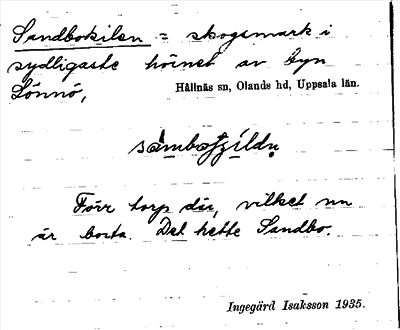 Sandbokilen = skogsmark i
sydligaste hörnet av byn
Lönnö, Hållnäs sn, Olands hd, Uppsala län.
Förr torp där, vilket nu
är borta. Det hette Sandbo.
Ingegärd Isaksson 1935.